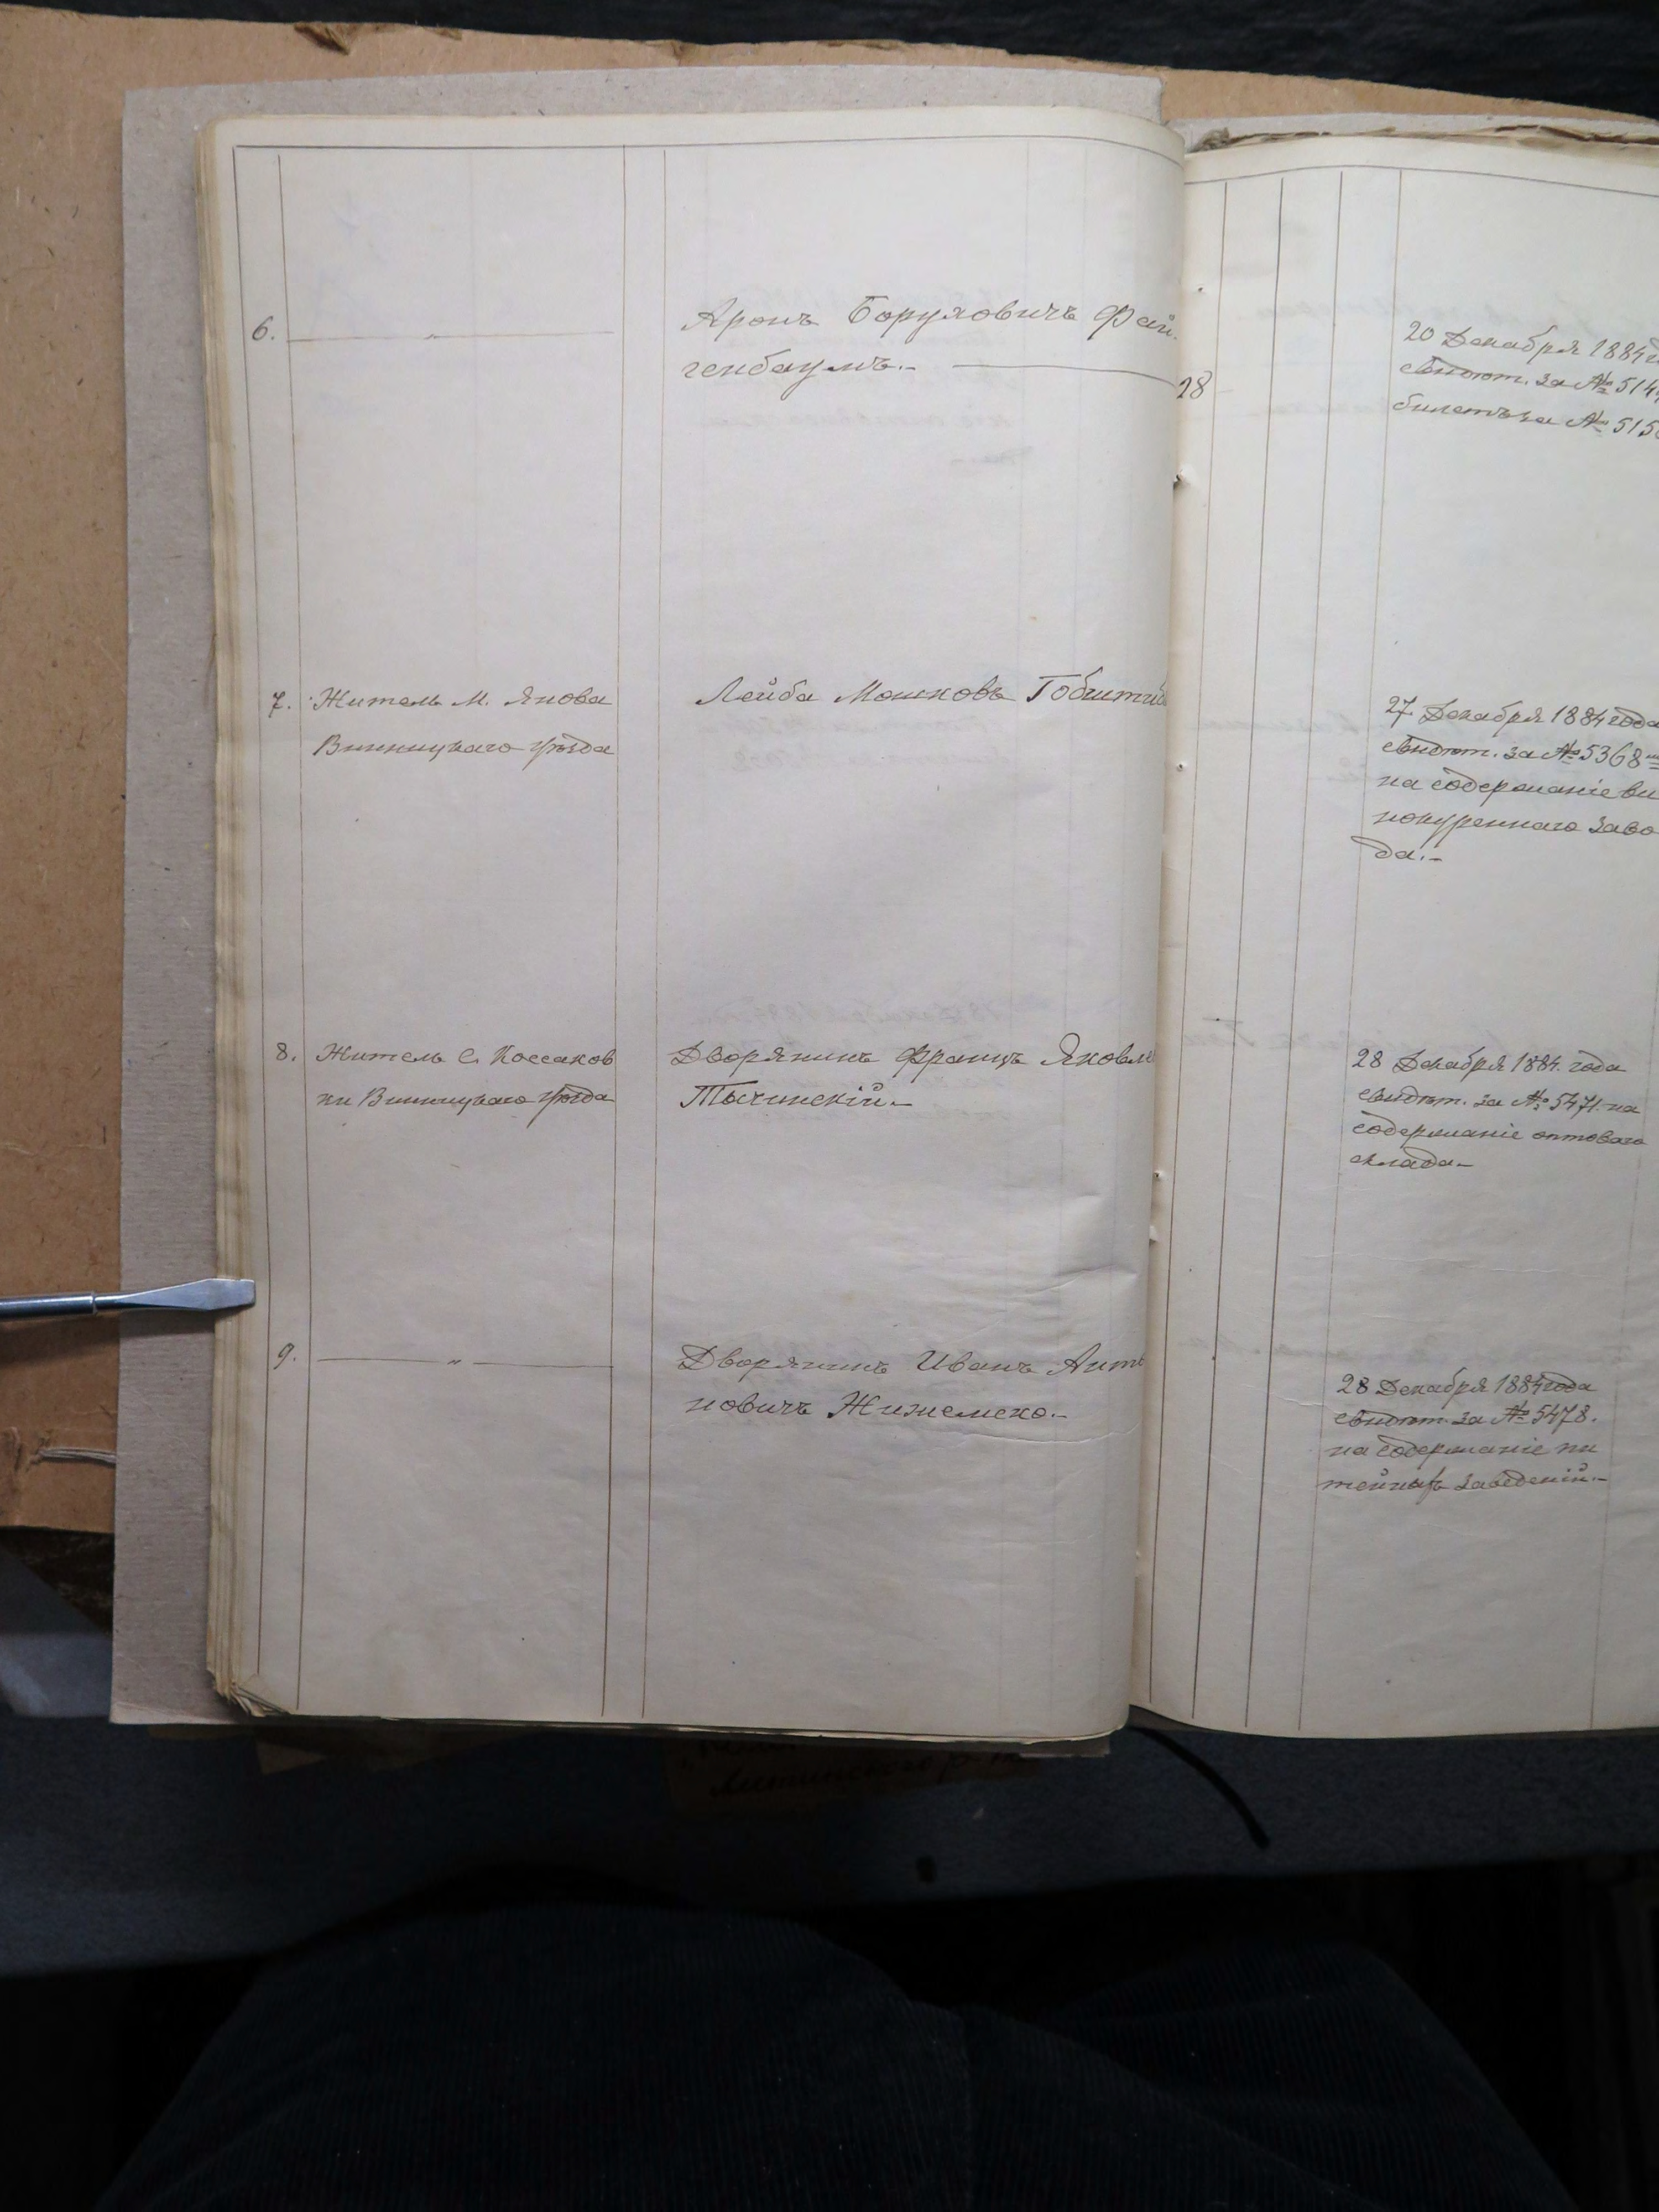 6. — „ —
Аронъ Боруховичъ Фай-
генбаумъ.-
28
20 Декабря 1884
свидѣт. за № 514
билетъ за № 515
7. Житель м. Янова
Винницкаго уѣзда
Лейба Мошковъ
27 Декабря 1884 года
свидѣт. за № 5368
на содержаніе ви
нокуреннаго заво
да.-
8. Житель с. Коссаков
ки Винницкаго уѣзда
Дворянинъ Францъ Яковле
Тычинскій.-
28 Декабря 1884 года
свидѣт. за № 5471 на
содержаніе оптоваго
склада-
9. — „ —
Дворянинъ Иванъ Анто
новичъ
28 Декабря 1884 года
свидѣт. за № 5478.
на содержаніе пи
тейныхъ заведеній.-